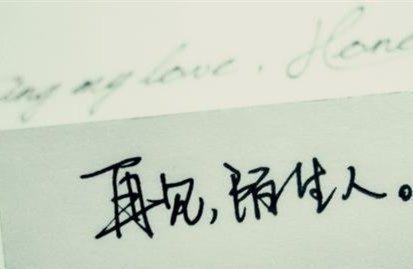 ing my love. Hone
再见,陌生人。